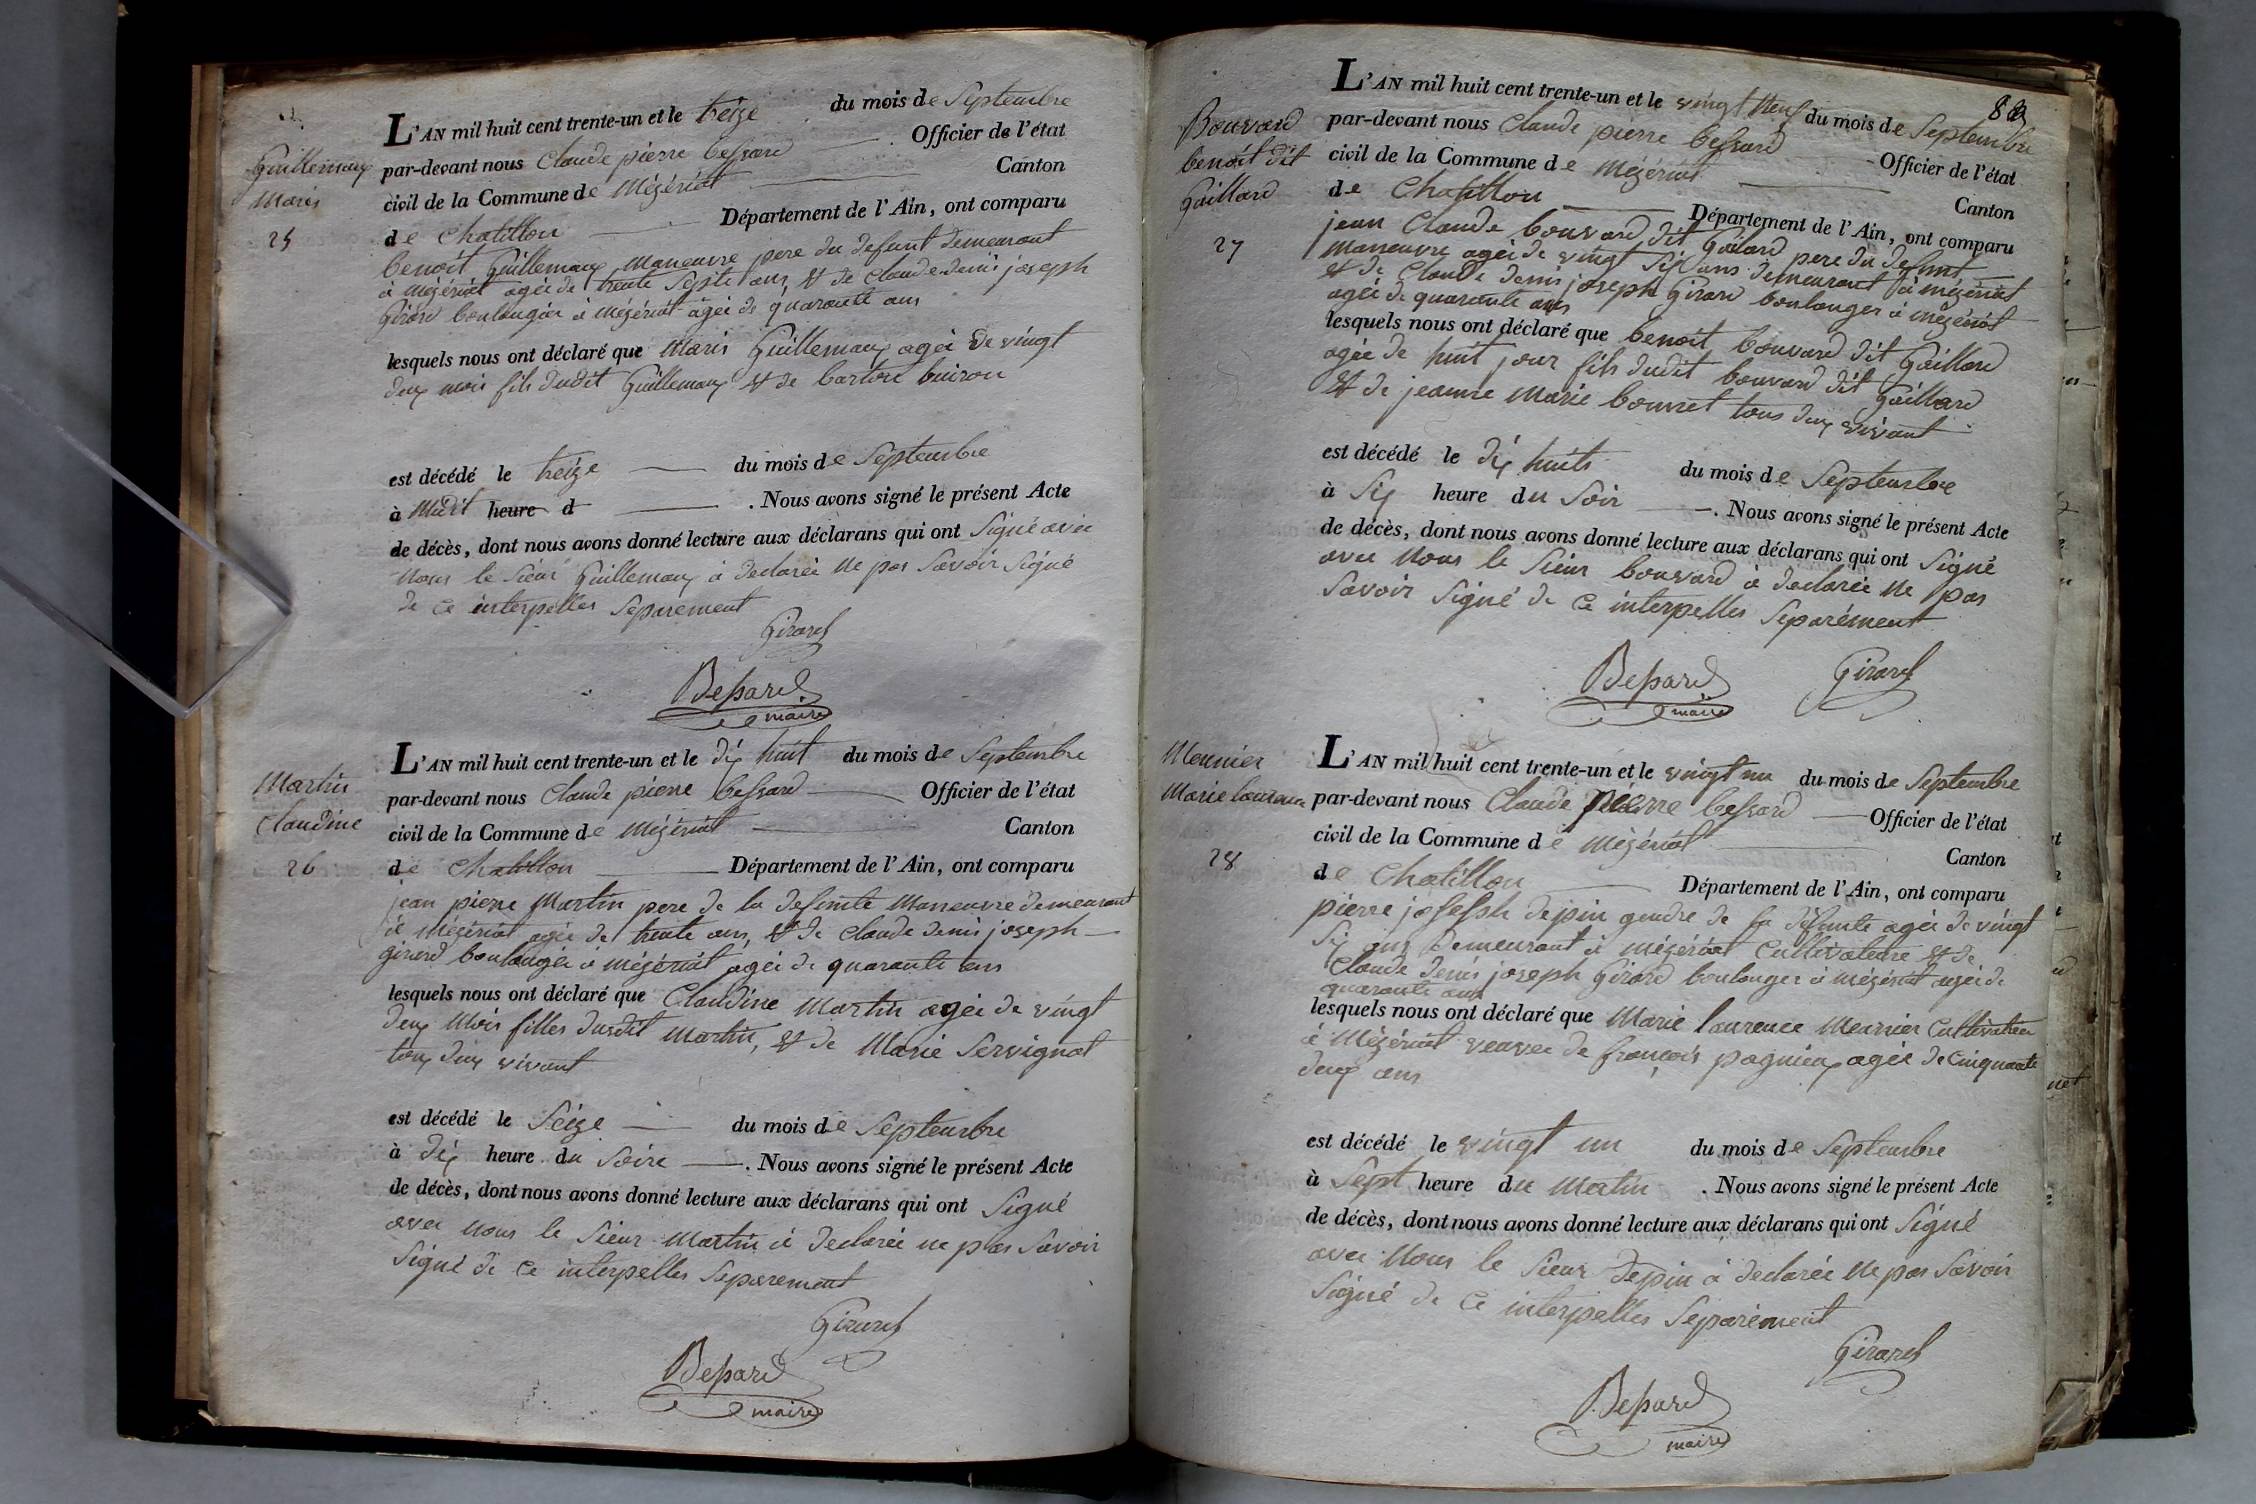 Guillemaux
Marie
25
L'AN mil huit cent trente-un et le treize du mois de Septembre
par-devant nous Claude pierre bessard Officier de l'état
civil de la Commune de Mézériat Canton
de Chatillon Département de l'Ain, ont comparu
benoit Guillemaux maneuvre pere du defunt demeurant
à mézériat agée de trente Septe ans, et de Claude denis joseph
Girard boulangée à mézériat agée de quarante ans
lesquels nous ont déclaré que Marie Guillemaux agée de vingt
deux mois fils dudit Guillemaux et de buiron
est décédé le treize du mois de Septembre
à Midit heure d . Nous avons signé le présent Acte
de décès, dont nous avons donné lecture aux déclarans qui ont Signé avec
nous le Sieur Guillemaux à declarée ne pas Savoir Signé
de ce interpelles Séparement
Girard
Bessard
maire
Martin
Claudine
26
L'AN mil huit cent trente-un et le dix huit du mois de Septembre
par-devant nous Claude pierre bessard Officier de l'état
civil de la Commune de Mézériat Canton
de Chatillon Département de l'Ain, ont comparu
jean pierre Martin pere de la defunte Maneuvre demeurant
à Mézériat agée de trente ans, et de Claude denis joseph
girard boulangée à mézériat agée de quarante ans
lesquels nous ont déclaré que Claudine Martin agée de vingt
deux Mois filles dudit Martin, et de Marie Servignat
tous deux vivant
est décédé le Seize du mois de Septembre
à dix heure du Soire . Nous avons signé le présent Acte
de décès, dont nous avons donné lecture aux déclarans qui ont Signé
avec nous le Sieur Martin à declarée ne pas Savoir
Signé de ce interpelles Séparement
Girard
Bessard
maire
88
Bouvard
benoit dit
Gaillard
27
L'AN mil huit cent trente-un et le vingt du mois de Septembre
par-devant nous Claude pierre bessard Officier de l'état
civil de la Commune de Mézériat Canton
de Chatillon Département de l'Ain, ont comparu
jean Claude bouvard dit Gailard pere du defunt
maneuvre agée de vingt Six ans demeurant à mézériat
et de Claude denis joseph Girard boulanger à mézériat
agée de quarante ans
lesquels nous ont déclaré que benoit bouvard dit Gaillard
agée de huit jour fils dudit bouvard dit Gaillard
et de jeanne Marie bouvret tous deux vivant
est décédé le dix huits du mois de Septembre
à Six heure du Soir . Nous avons signé le présent Acte
de décès, dont nous avons donné lecture aux déclarans qui ont Signé
avec nous le Sieur bouvard à declarée ne pas
Savoir Signé de ce interpelles Séparément
Bessard
maire
Girard
Meunier
Marie laurence
28
L'AN mil huit cent trente-un et le vingt un du mois de Septembre
par-devant nous Claude pierre bessard Officier de l'état
civil de la Commune de Mézériat Canton
de Chatillon Département de l'Ain, ont comparu
pierre josesph depin gendre de la défunte agée de vingt
Six ans demeurant à mézériat Cultivateure et de
Claude denis joseph Girard boulanger à mézériat agée de
quarante ans
lesquels nous ont déclaré que Marie laurence Meunier Cultivateur
à Mézériat veuvee de françois pagnieux agée de Cinquante
deux ans
est décédé le vingt un du mois de Septembre
à Sept heure du Matin . Nous avons signé le présent Acte
de décès, dont nous avons donné lecture aux déclarans qui ont Signé
avec Nous le Sieur depin à declarée ne pas Savoir
Signé de ce interpelles Séparément
Girard
Bessard
maire